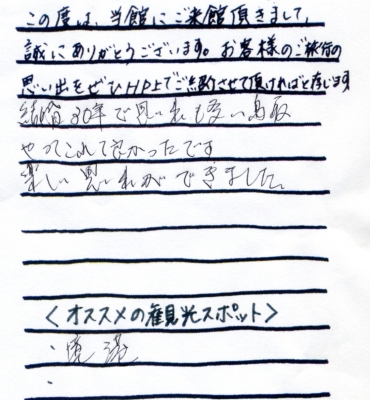 この度は、当館にご来館頂きまして、
誠にありがとうございます。お客様のご旅行の
思い出をぜひHP上でご紹介させて頂ければと存じます
結婚30年で思い出も多い鳥取
やってこれて良かったです
楽しい思い出ができました。
<オススメの観光スポット>
・境港
・